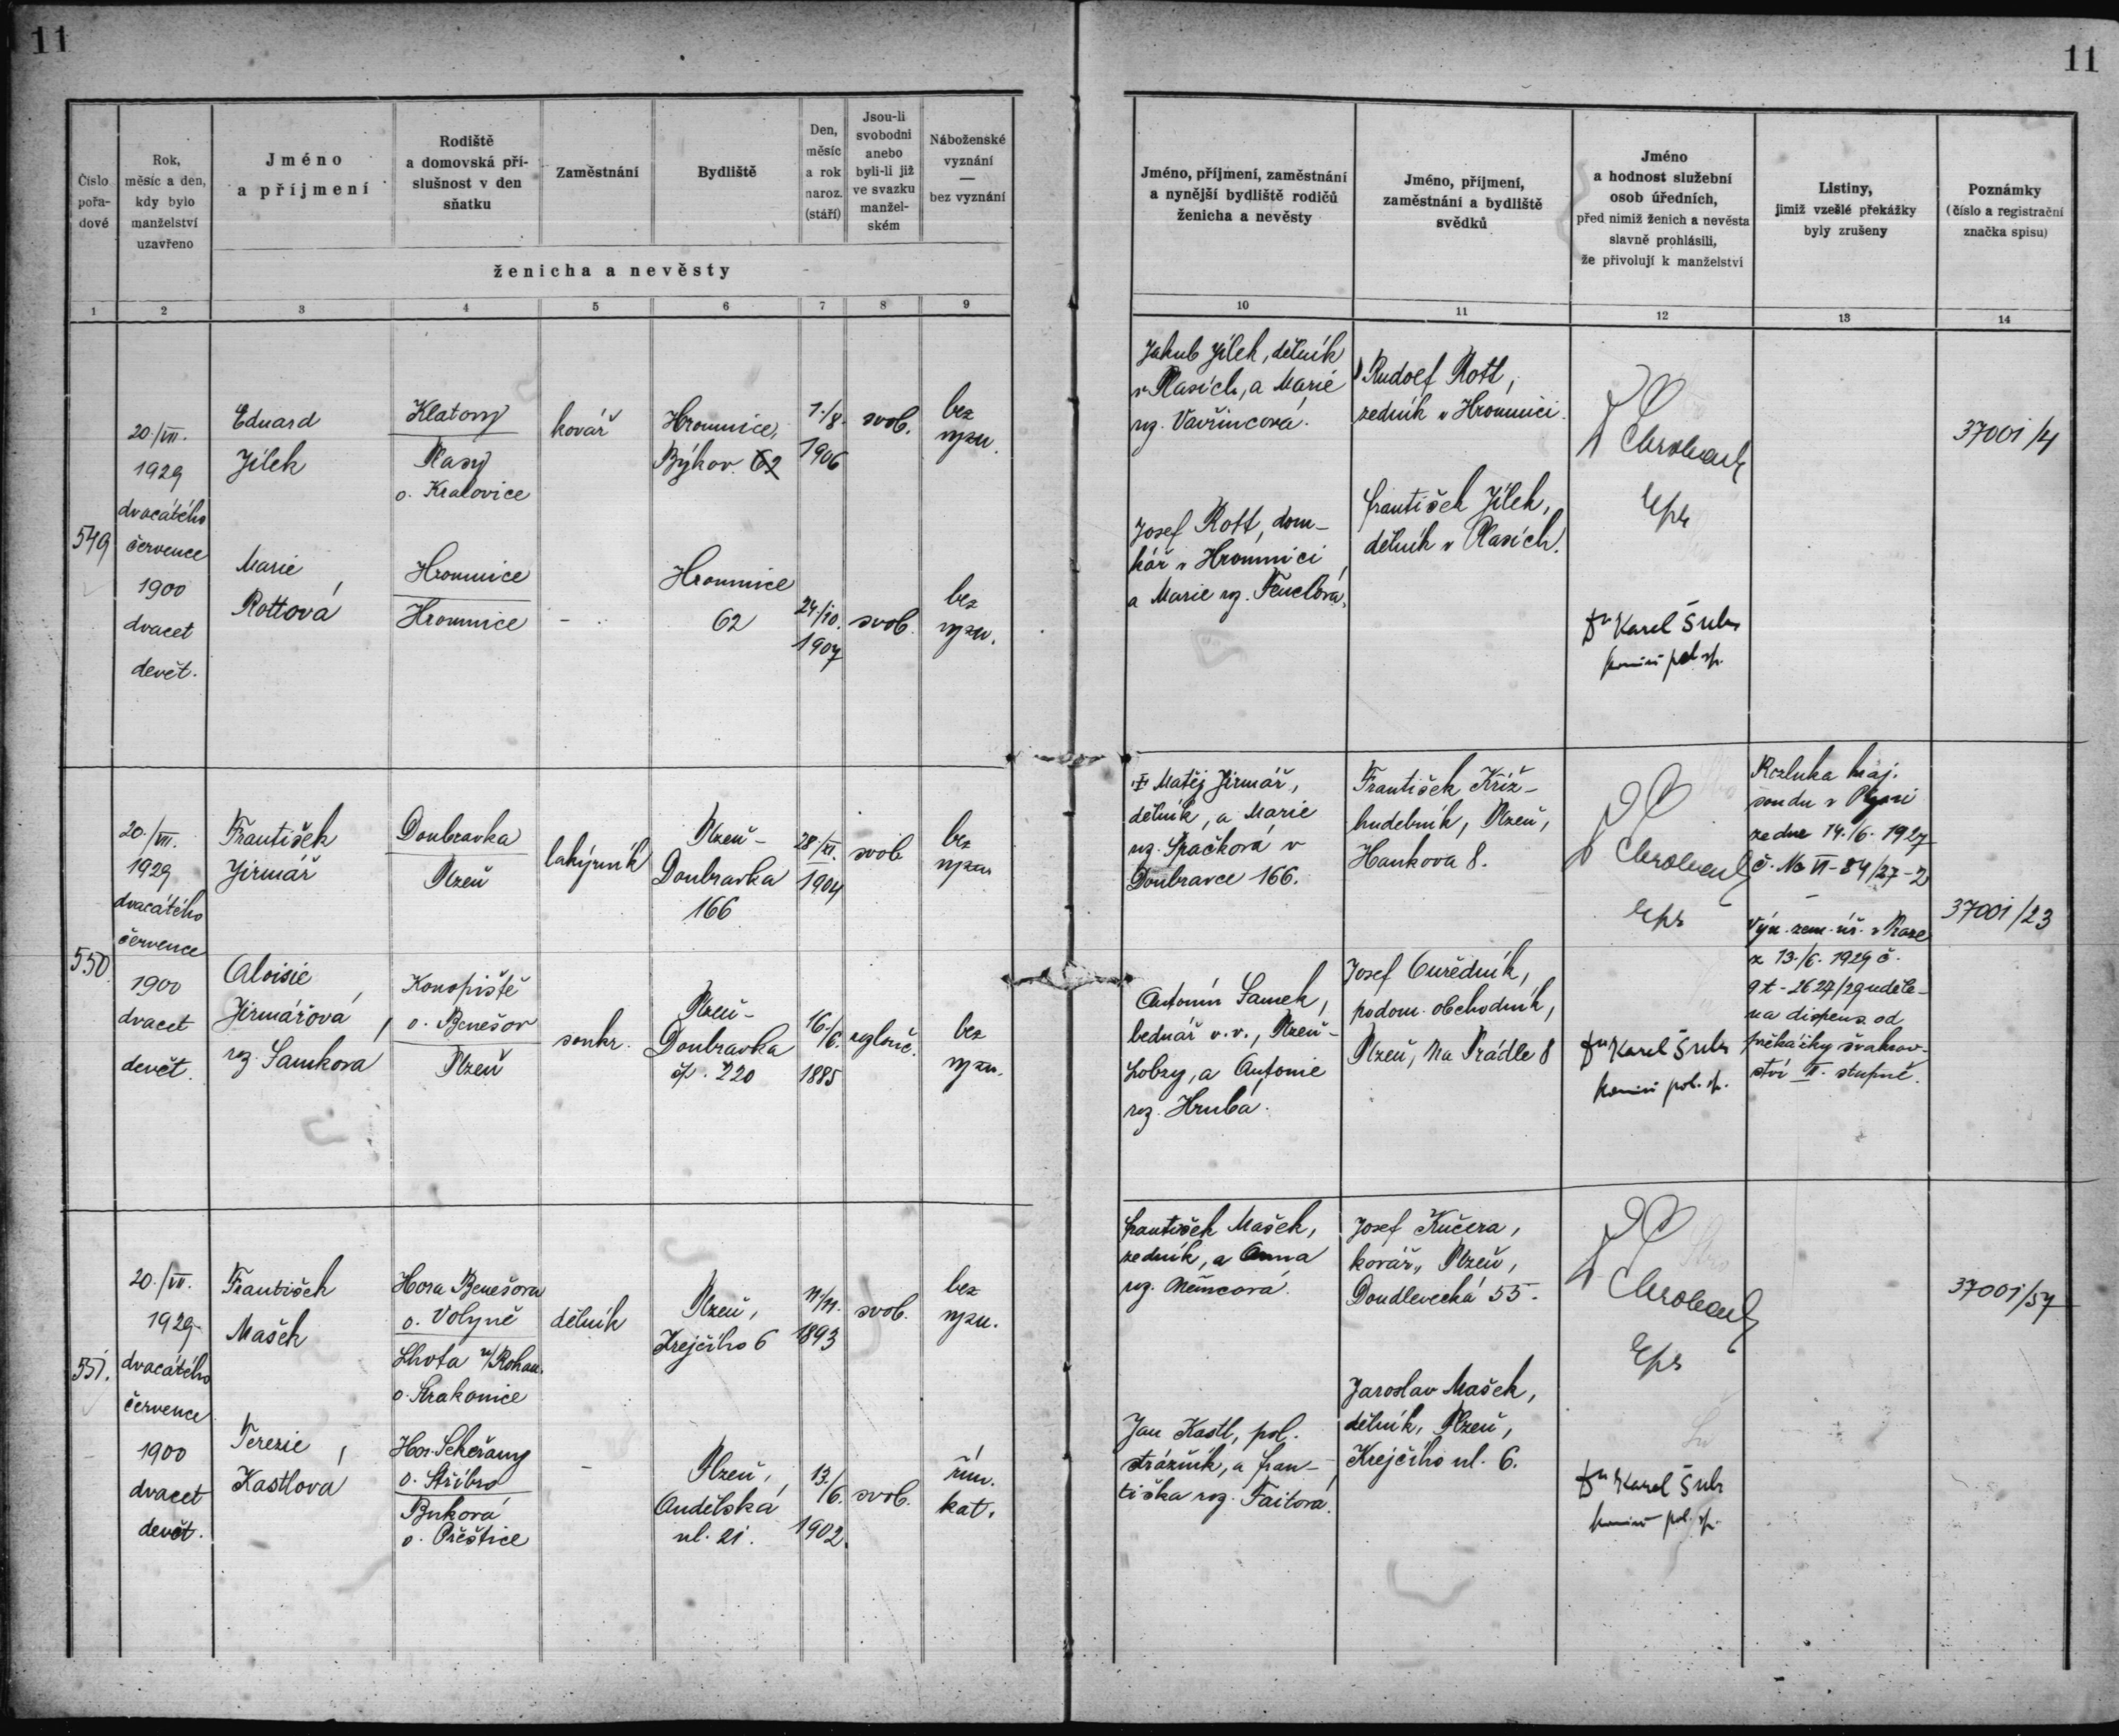 11
11
Číslo
pořa-
dové
Rok,
měsíc a den,
kdy bylo
manželství
uzavřeno
Jméno
a příjmení
Rodiště
a domovská pří-
slušnost v den
sňatku
Zaměstnání
Bydliště
Den,
měsíc
a rok
naroz.
(stáří)
Jsou-li
svobodni
anebo
byli-li již
ve svazku
manžel-
ském
Náboženské
vyznání
—
bez vyznání
ženicha a nevěsty
1 2 3 4 5 6 7 8 9
Jméno, příjmení, zaměstnání
a nynější bydliště rodičů
ženicha a nevěsty
Jméno, příjmení,
zaměstnání a bydliště
svědků
Jméno
a hodnost služební
osob úředních,
před nimiž ženich a nevěsta
slavně prohlásili,
že přivolují k manželství
Listiny,
jimiž vzešlé překážky
byly zrušeny
Poznámky
(číslo a registrační
značka spisu)
10 11 12 13 14
549
20./VII.
1929
dvacátého
července
1900
dvacet
devět.
Eduard
Jílek
Klatovy
Plasy
o. Kralovice
kovář
Hromnice,
Býkov 62
1./8.
1906
svob.
bez
vyzn.
Marie
Rottová
Hromnice
Hromnice
-
Hromnice
62
24./10.
1907
svob.
bez
vyzn.
Jakub Jílek, dělník
v Plasích, a Marie
roz. Vavřincová.
Josef Rott, dom-
kář v Hromnici
a Marie roz.
Rudolf Rott,
zedník v Hromnici.
František Jílek,
dělník v Plasích.
Dr Karel Šulc
komisař pol. spr.
37001/4
550
20./VII.
1929
dvacátého
července
1900
dvacet
devět.
František
Jirmář
Doubravka
Plzeň
lakýrník
Plzeň-
Doubravka
166
28/XI.
1904
svob
bez
vyzn
Aloisie
Jirmářová,
roz. Samková
Konopiště
o. Benešov
Plzeň
soukr.
Plzeň-
Doubravka
čp. 220
16./6.
1885
rozlouč.
bez
vyzn.
Matěj Jirmář,
dělník, a Marie
roz. Špačková v
Doubravce 166.
Antonín Samek,
bednář v.v., Plzeň-
Lobzy, a Antonie
roz. Hrubá.
František Kříž-
hudebník, Plzeň,
Hankova 8.
Josef Cuředník,
podom. obchodník,
Plzeň, Na Prádle 8
Dr Karel Šulc
komisař pol. spr.
Rozluka kraj.
soudu v Plzni
ze dne 14./6. 1927
č. Nc VI-84/27-2
Výn. zem. úř. v Praze
z 13./6. 1929 č.
9t-2627/29 uděle-
na dispens od
překážky švakrov-
ství II. stupně.
37001/23
551.
20./VII.
1929
dvacátého
července
1900
dvacet
devět.
František
Mašek
Hora Benešova
o. Volyně
Lhota u/Rohan.
o. Strakonice
dělník
Plzeň,
Krejčího 6
11/11.
1893
svob.
bez
vyzn.
Terezie
Kastlová
Hor. Sekeřany
o. Stříbro
Buková
o. Přeštice
-
Plzeň,
Andělská
ul. 21.
13./6.
1902.
svob.
řím.
kat.
František Mašek,
zedník, a Anna
roz. Němcová.
Jan Kastl, pol.
strážník, a Fran-
tiška roz. Faitová.
Josef Kučera,
kovář, Plzeň,
Doudlevecká 55.
Jaroslav Mašek,
dělník, Plzeň,
Krejčího ul. 6.
Dr Karel Šulc
komisař pol. spr.
37001/57